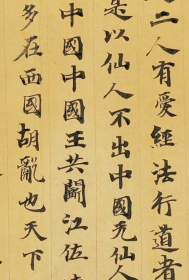 二人有愛經法行道者
是以仙人不出中國无仙人
中國中國王共鬪江佐
多在西國胡亂也天下